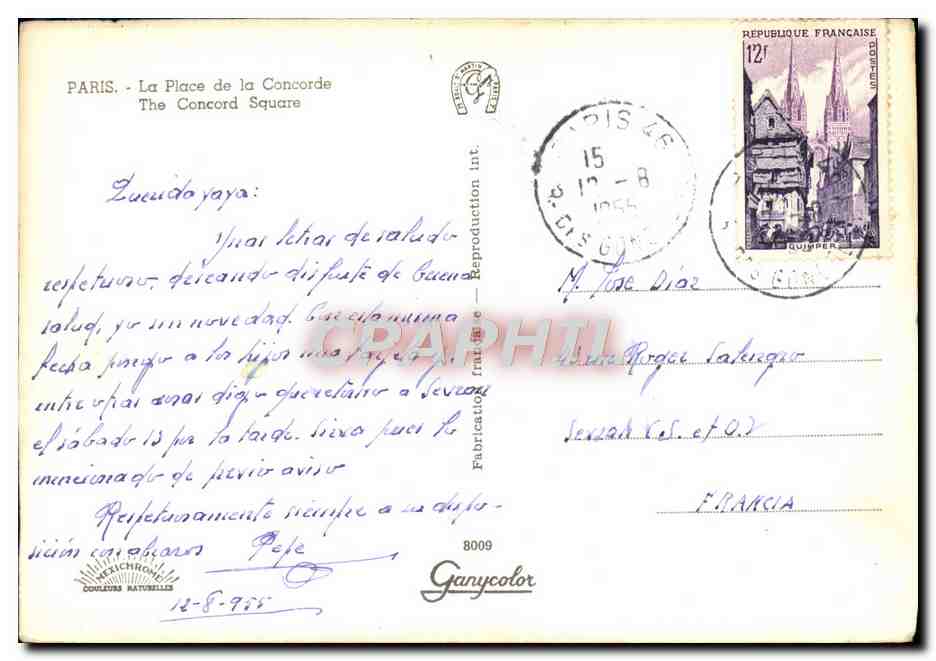 PARIS. - La Place de la Concorde
The Concord Square
REPUBLIQUE FRANÇAISE
12F
POSTES
QUIMPER
PARIS 46
15
12 - 8
1955
Querida yaya:
Unas letras de saludo
respetuoso, deseando disfrute de buena
salud, yo sin novedad. Con esta misma
fecha pongo a los hijos una tarjeta y
entre otras cosas digo que retorno a Sevran
el sábado 13 por la tarde. Sirva pues lo
mencionado de previo aviso
Respetuosamente siempre a su dispo-
sición con abrazos Pepe
12-8-955
M. Jose Díaz
rue Roger Salengro
S. et O.
FRANCIA
Fabrication française — Reproduction int.
CPAPHIL
MEXICHROME
COULEURS NATURELLES
8009
Ganycolor